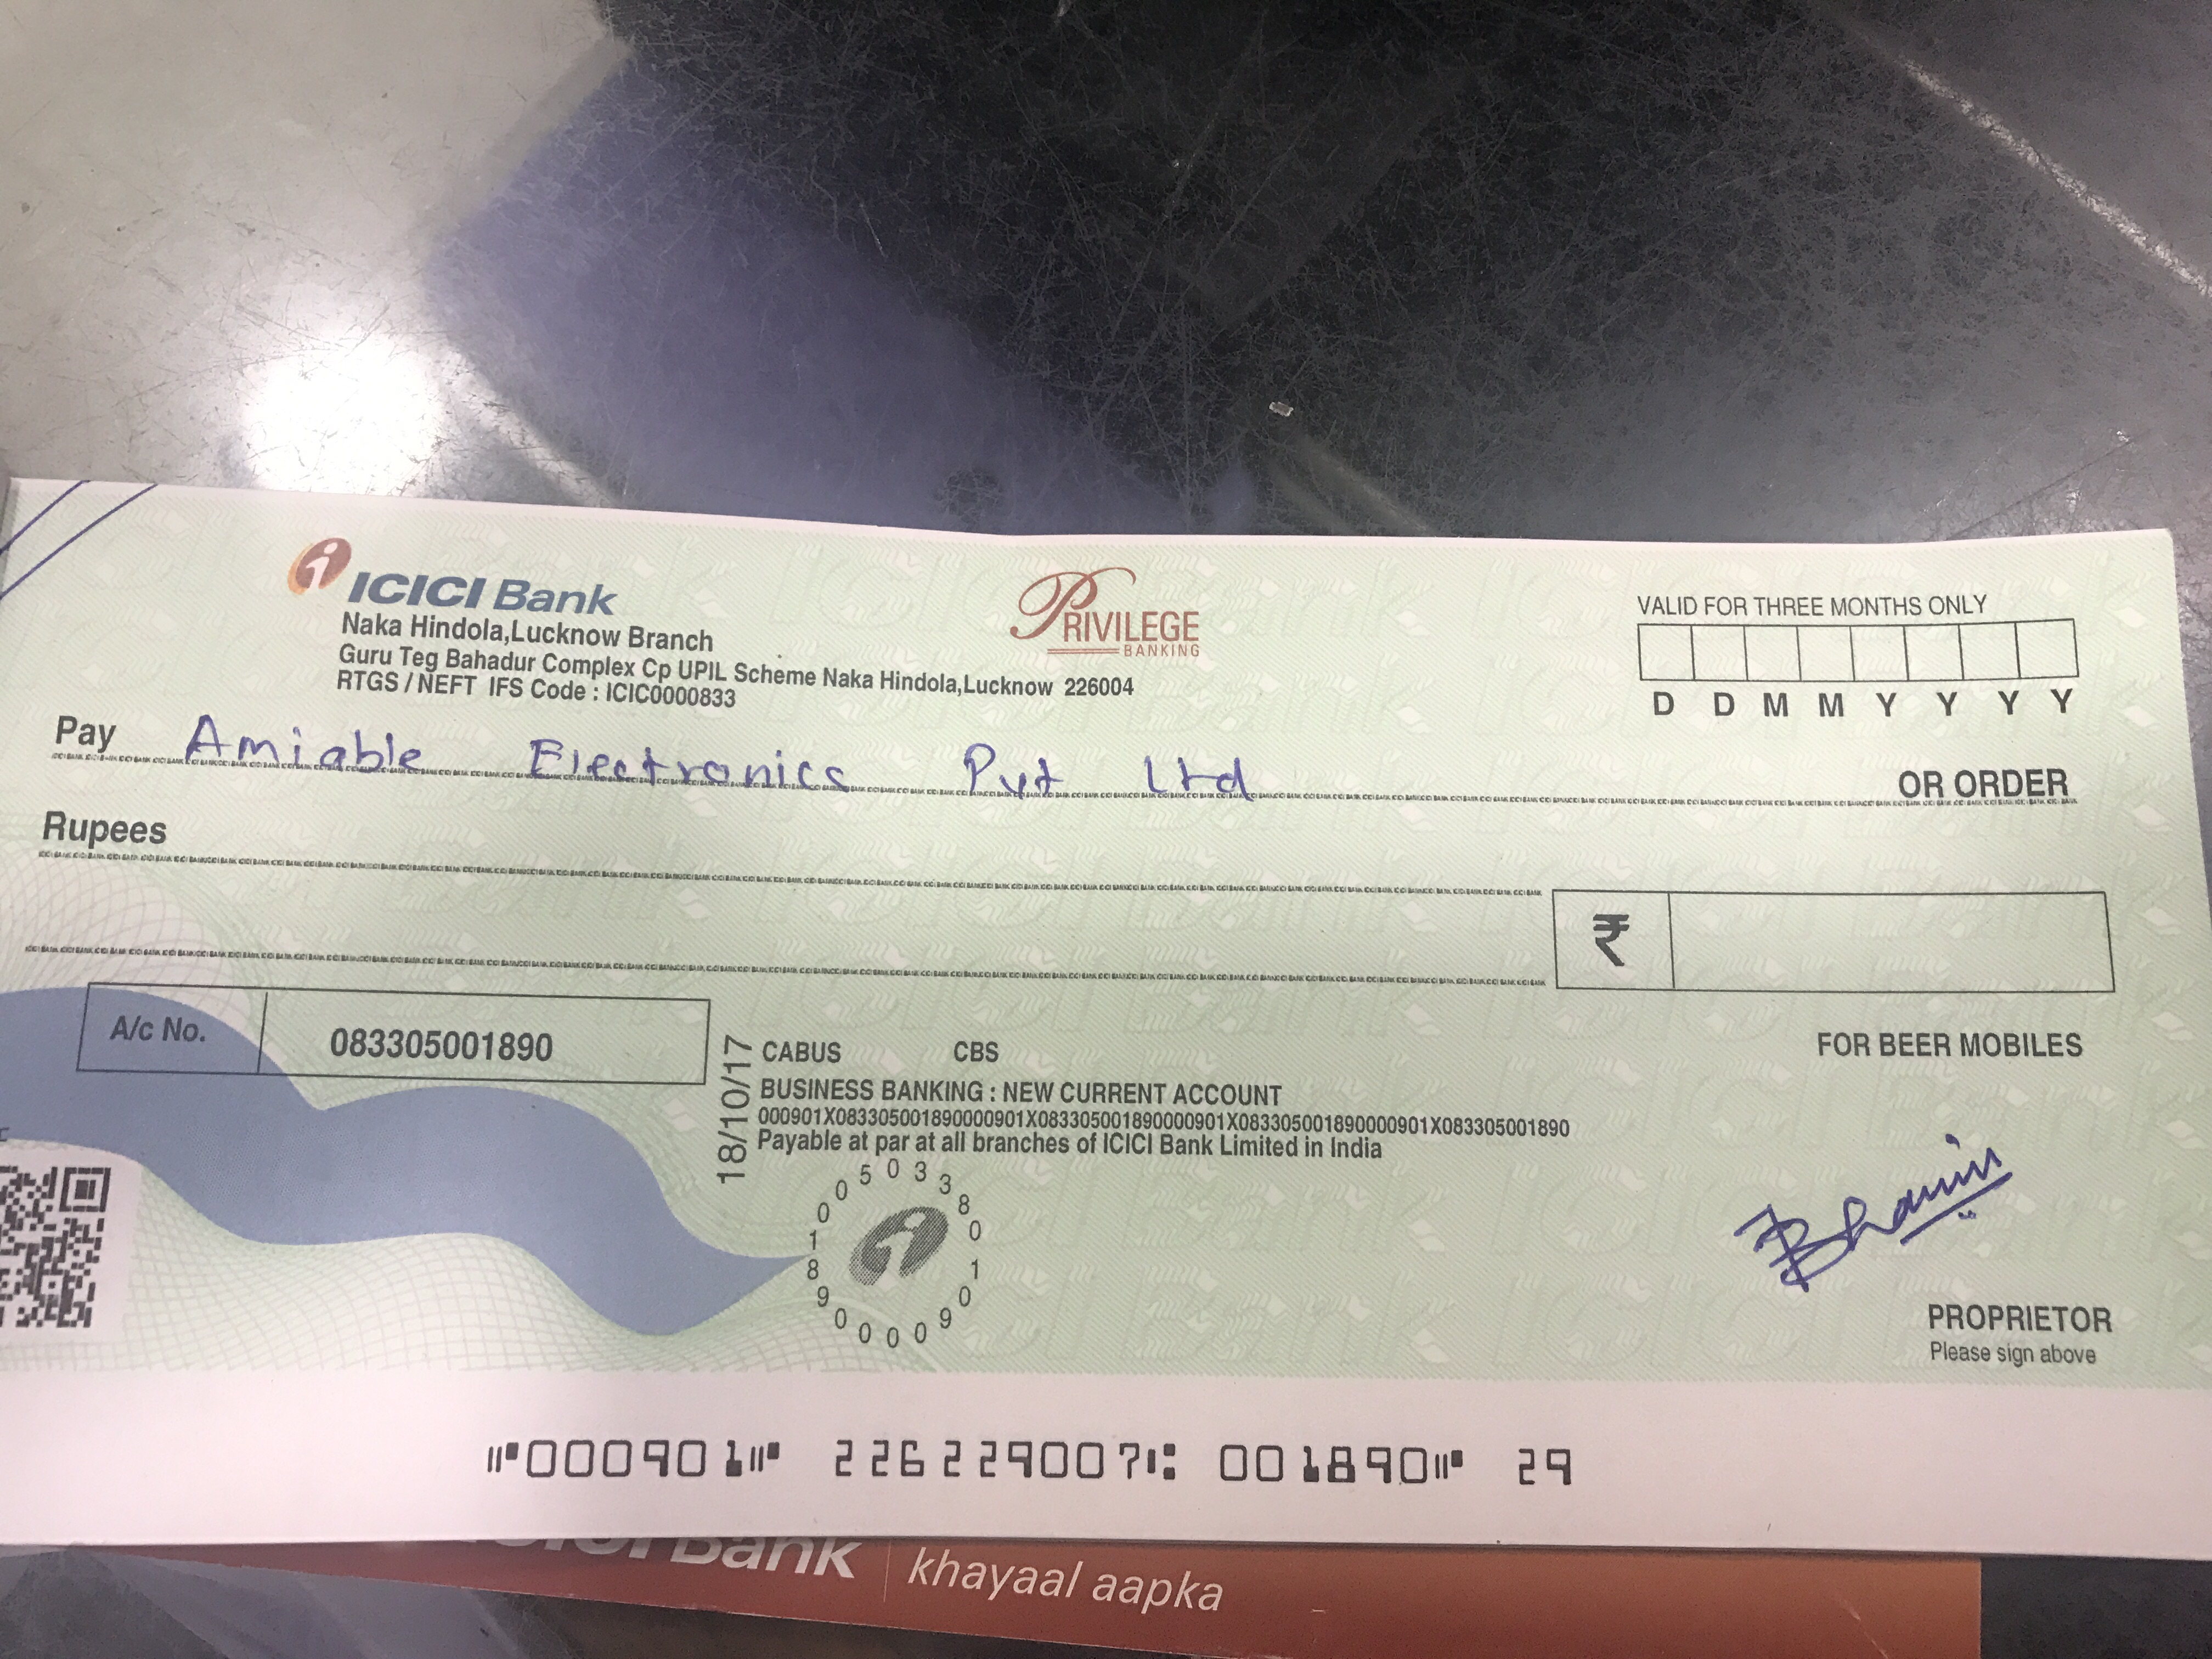 ICICI Bank
Naka Hindola,Lucknow Branch
Guru Teg Bahadur Complex Cp UPIL Scheme Naka Hindola,Lucknow 226004
RTGS / NEFT IFS Code : ICIC0000833
PRIVILEGE
BANKING
VALID FOR THREE MONTHS ONLY
D D M M Y Y Y Y
Pay Amiable Electronics Pvt Ltd OR ORDER
Rupees
₹
A/c No. 083305001890
FOR BEER MOBILES
18/10/17 CABUS CBS
BUSINESS BANKING : NEW CURRENT ACCOUNT
000901X083305001890000901X083305001890000901X083305001890000901X083305001890
Payable at par at all branches of ICICI Bank Limited in India
PROPRIETOR
Please sign above
⑈000901⑈ 226229007⑆ 001890⑈ 29
khayaal aapka